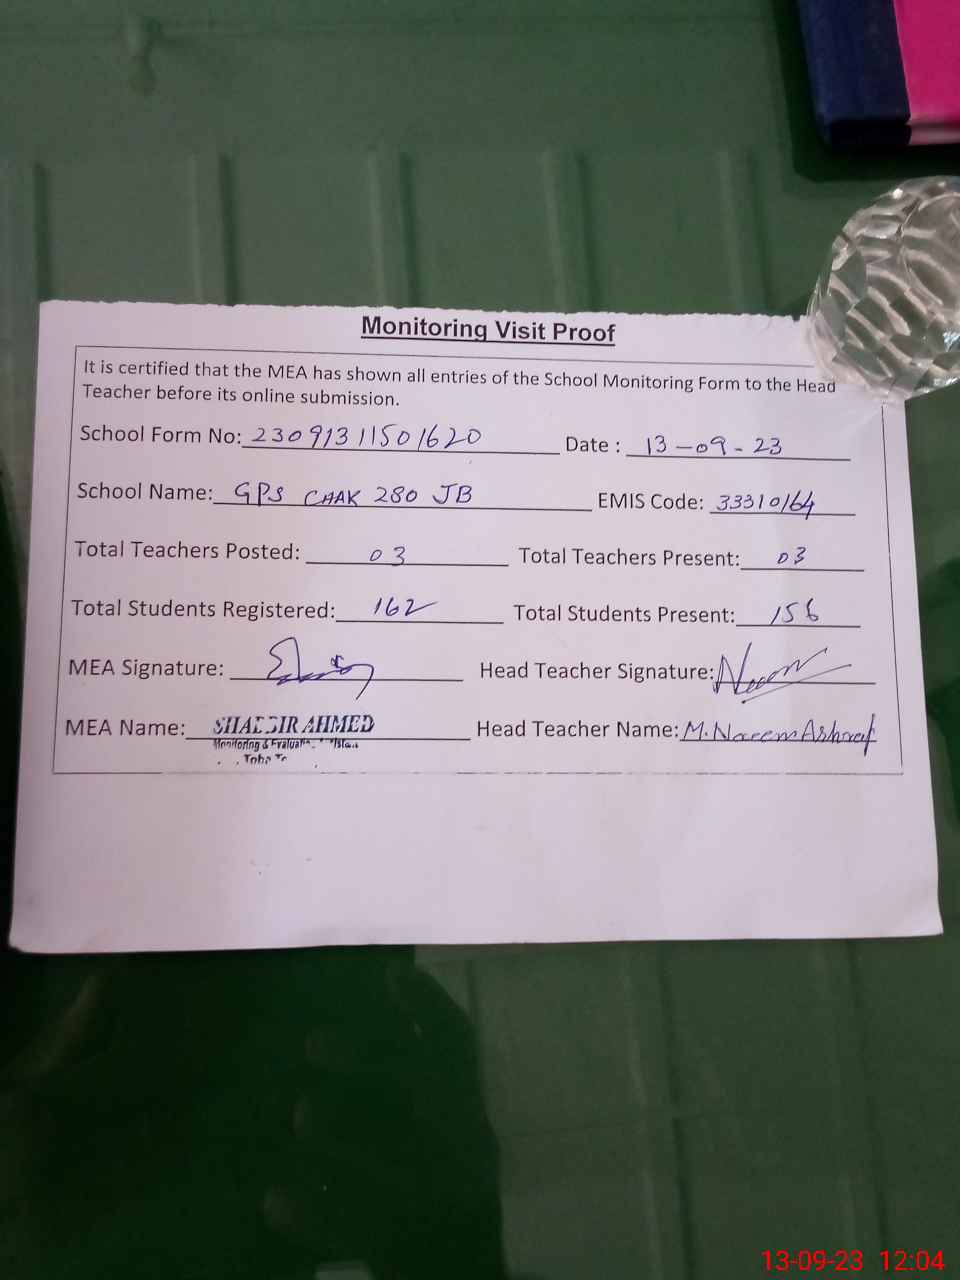 Monitoring Visit Proof
It is certified that the MEA has shown all entries of the School Monitoring Form to the Head
Teacher before its online submission.
School Form No: 23091311501620 Date : 13-09-23
School Name: GPS CHAK 280 JB EMIS Code: 33310164
Total Teachers Posted: 03 Total Teachers Present: 03
Total Students Registered: 162 Total Students Present: 156
MEA Signature: Head Teacher Signature:
MEA Name: SHABBIR AHMED Head Teacher Name: M. Naeem Ashraf
Monitoring &
13-09-23 12:04